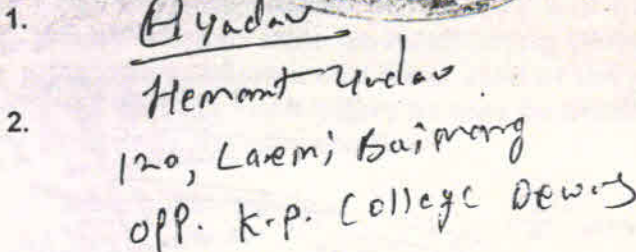 1. H Yadav
Hemant Yadav
2.
120, Laxmi Bai marg
opp. K.P. College Dewas